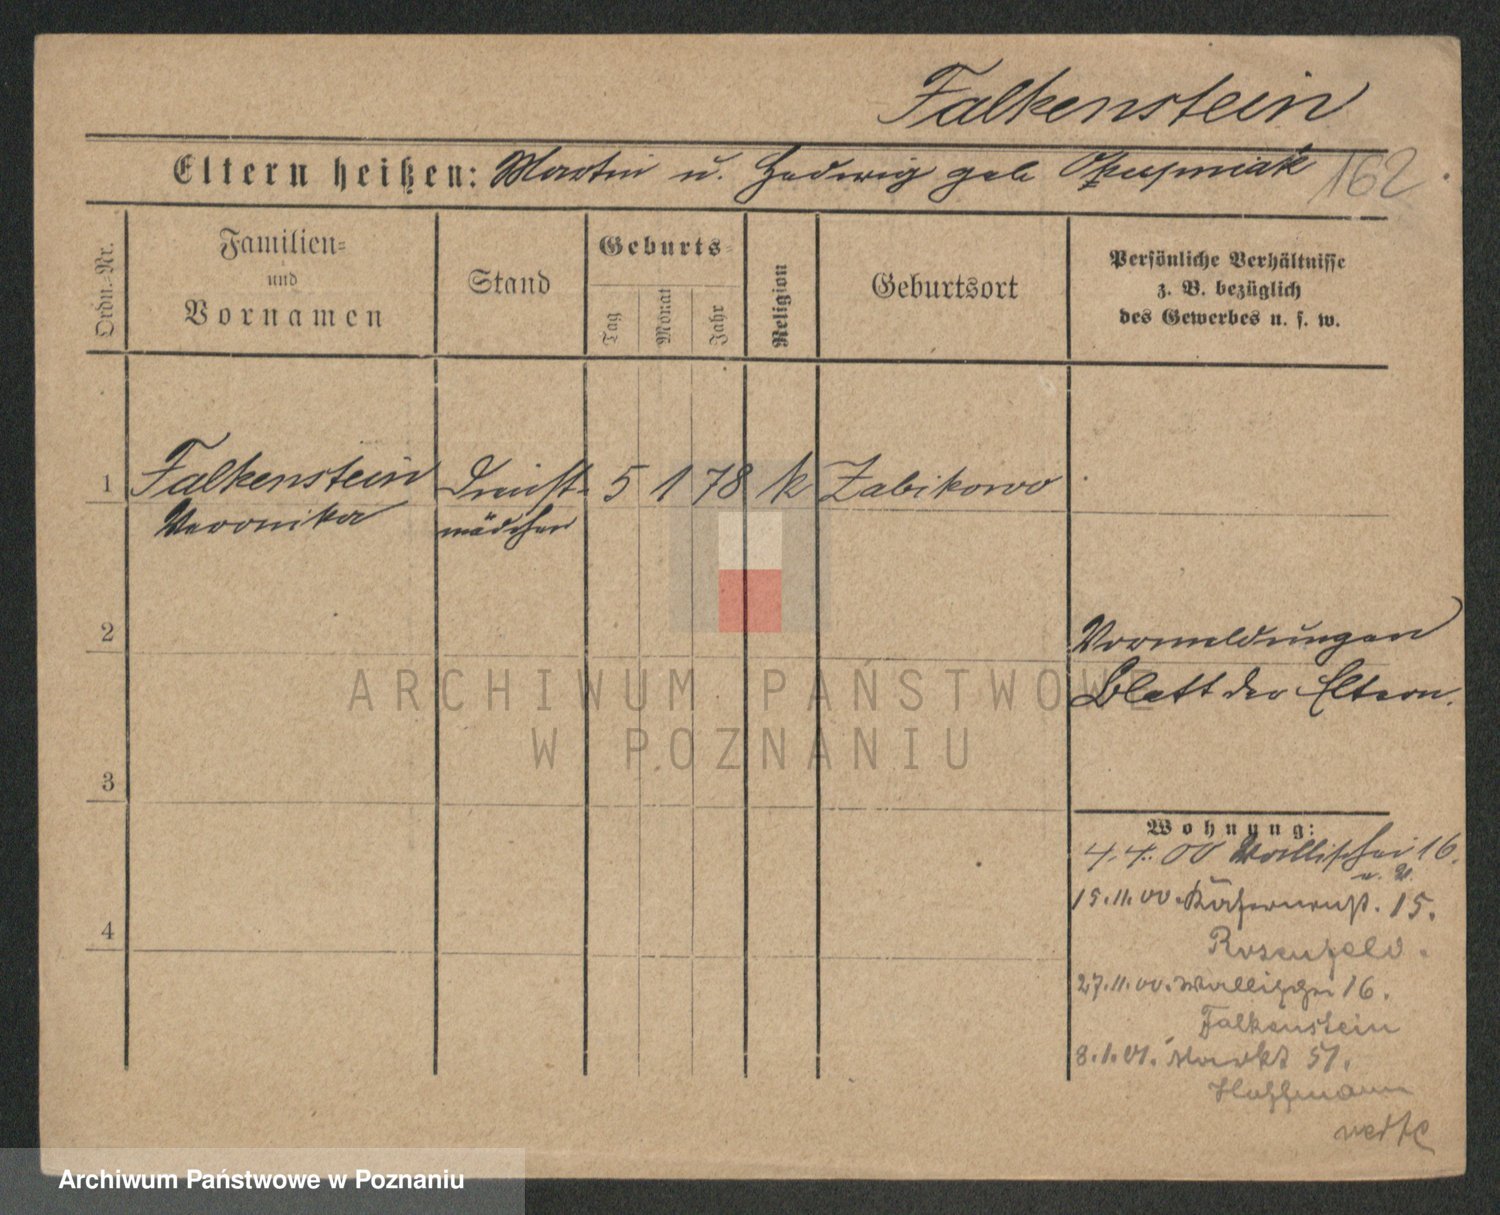 Falkenstein
Eltern heißen: Martin u. Hedwig geb 162
Ordn.-Nr.
Familien-
und
Vornamen
Stand
Geburts-
Tag
Monat
Jahr
Religion
Geburtsort
Persönliche Verhältnisse
z. B. bezüglich
des Gewerbes u. s. w.
1 Falkenstein Dienst- 5 1 78 k Zabikowo
Veronika mädchen
2
Vormeldungen
Blatt der Eltern.
ARCHIWUM PAŃSTWOWE
W POZNANIU
3
Wohnung:
4.4.00 Wallischei 16.
15.11.00. 15.
4
Rosenfeld.
27.11.00. Wallischei 16.
Falkenstein
8.1.01. Markt 51.
Hoffmann
Archiwum Państwowe w Poznaniu